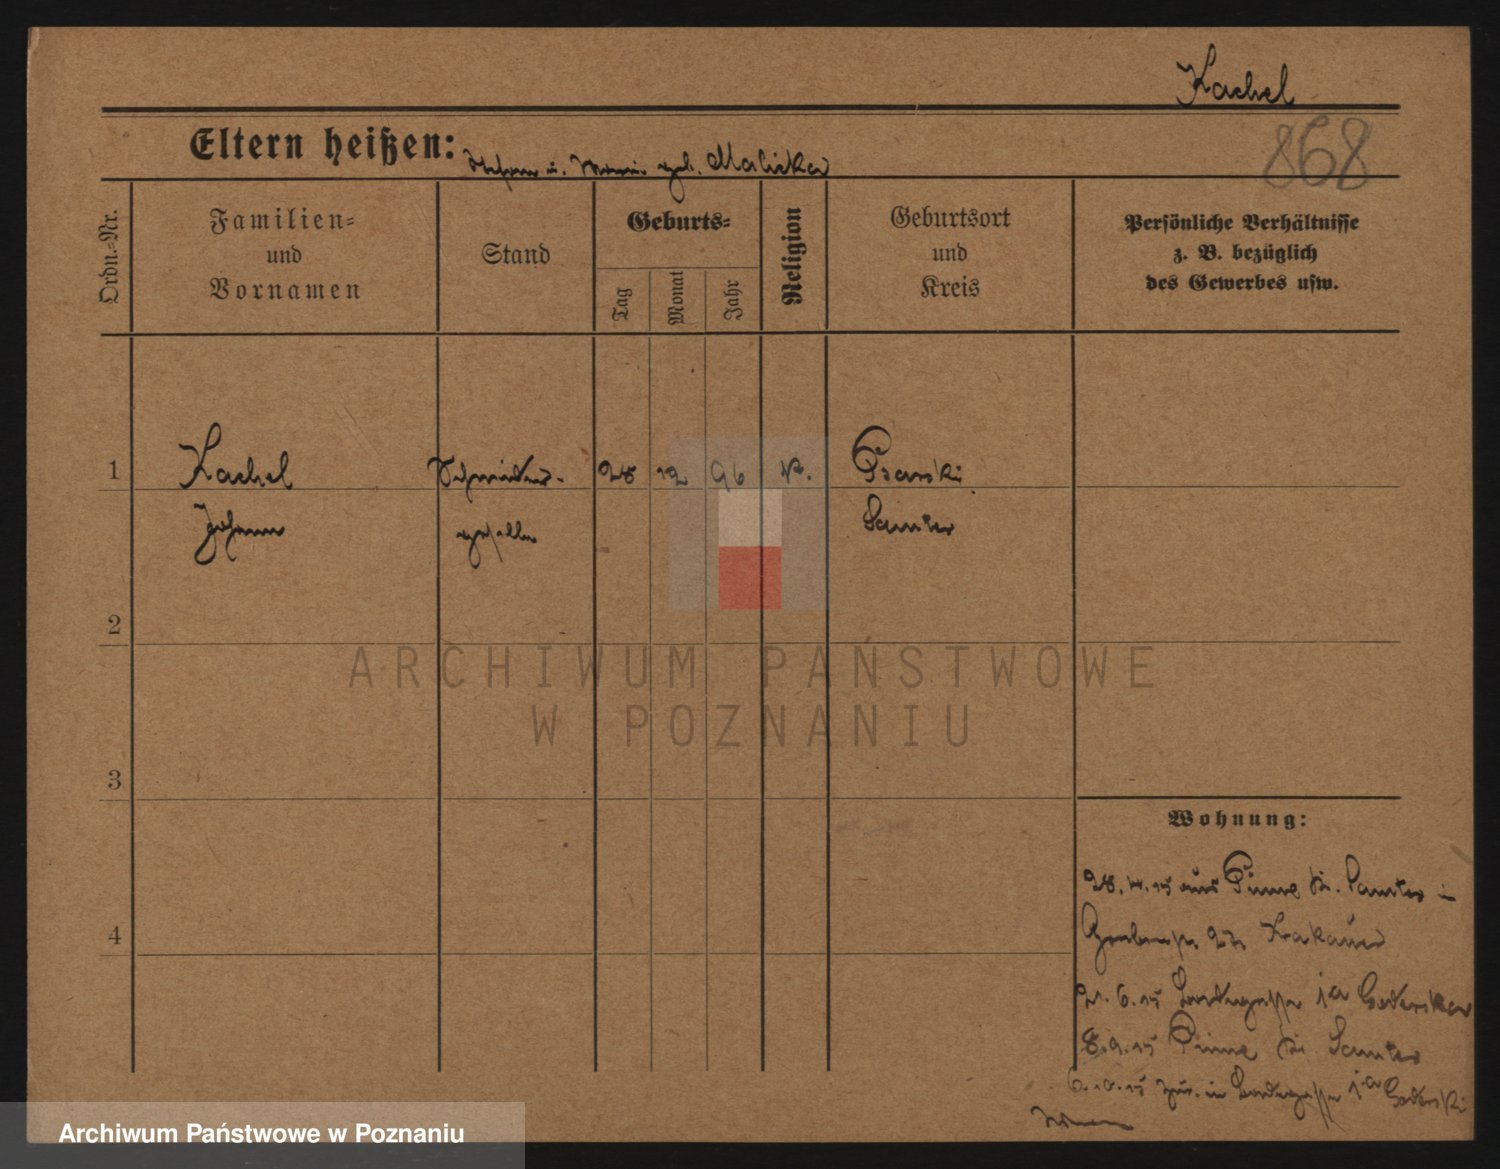 Kachel
868
Eltern heißen: Stephan u. Maria geb. Malicka
Ordn.=Nr.
Familien=
und
Vornamen
Stand
Geburts=
Tag
Monat
Jahr
Religion
Geburtsort
und
Kreis
Persönliche Verhältnisse
z. B. bezüglich
des Gewerbes usw.
1 Kachel Schneider- 28 12 96 k. Psarski
Johann geselle Samter
2
3
4
ARCHIWUM PAŃSTWOWE
W POZNANIU
Wohnung:
28.4.15 aus Pinne Kr. Samter in
Krakauer
21.6.15 1a
8.9.15 Pinne Kr. Samter
6.10.15 zur. in 1a
Archiwum Państwowe w Poznaniu